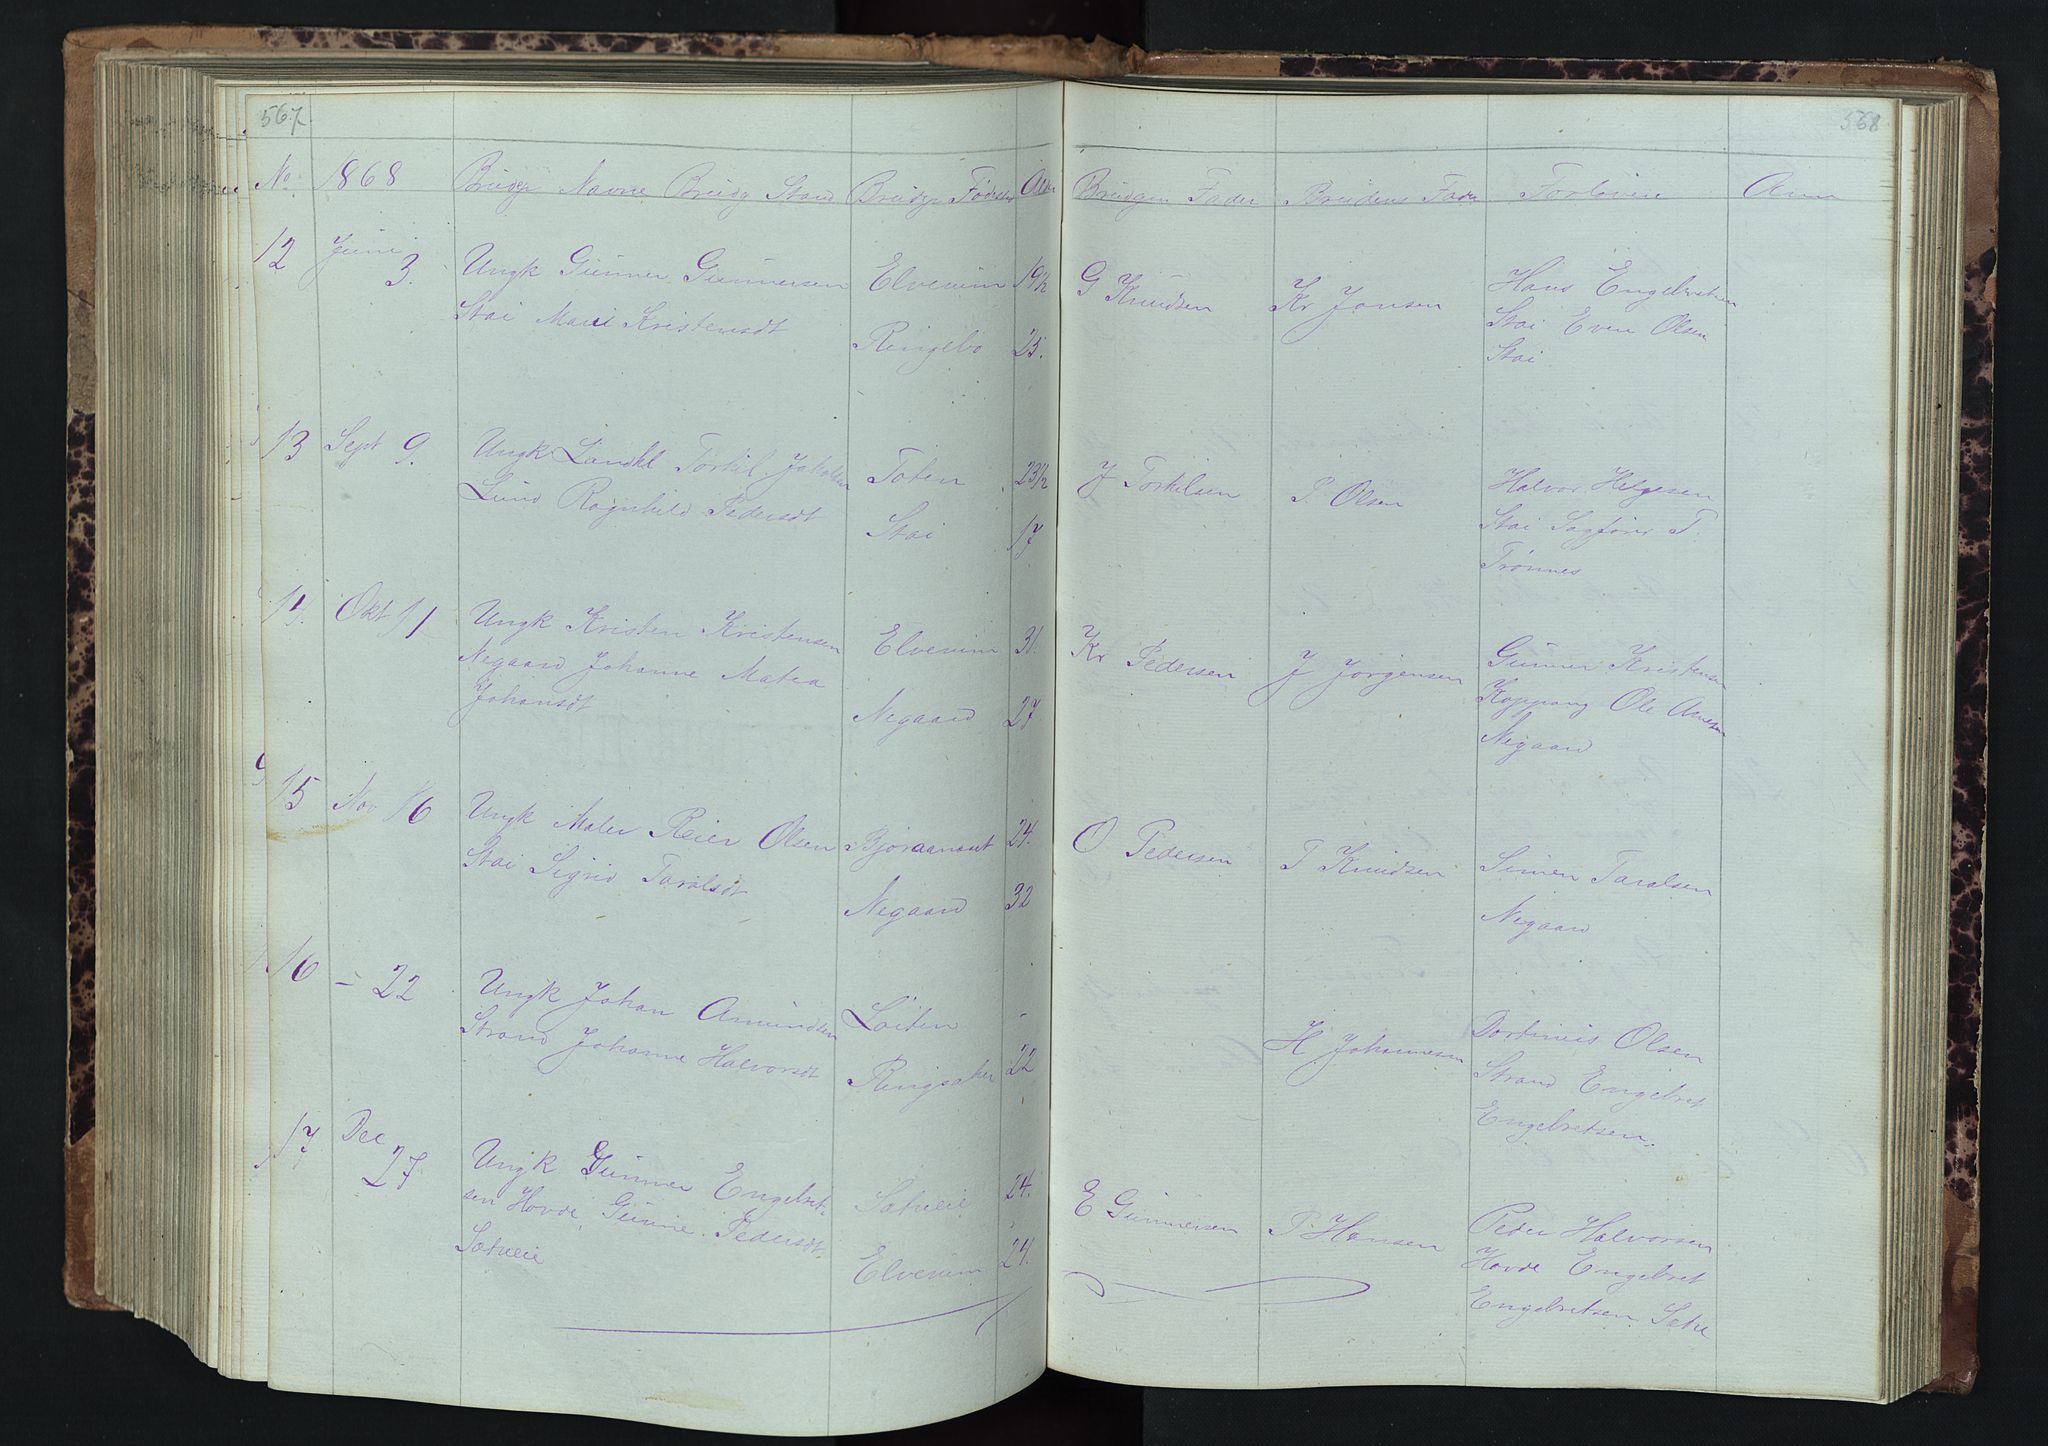 567
568
No. 1868 Brudgs Navne Brudg Stand Brudgs Fødested Alder Brudgms Fader Brudens Fader Forlovere Anm
12 Juni 3. Ungk Gunner Gunnersen Elverum 19½ G Knudsen Kr Jonsen Hans Engebretsen
Stai Mari Kristensdt Ringebo 25. Stai Even Olsen
Stai
13 Sept 9. Ungk Landhl Torkil Jakobsen Toten 23½ J Torkilsen P Olsen Halvor Helgesen
Lund Ragnhild Pedersdt Stai 17 Stai Sagfører T.
Trønnes
14. Okt 11 Ungk Kristen Kristensen Elverum 31. Kr Pedersen J Jørgensen Gunner Kristensen
Negaard Johanne Matea Koppang Ole Arnesen
Johansdt Negaard 27 Negaard
15 Nov 16 Ungk Maler Reier Olsen Bjøraanæset 24. O Pedersen T Knudsen Simen Taralsen
Stai Sigrid Taralsdt Negaard 32 Negaard
16 - 22 Ungk Johan Amundsen Løiten - H Johannesen Dortinus Olsen
Strand Johanne Halvorsdt Ringsaker 22 Strand Engebret
Engebretsen.
17 Dec 27 Ungk Gunner Engebret- Satreie 24. E Gunnersen P Hansen Peder Halvorsen
sen Hovde, Gunne Pedersdt. Elverum 24. Hovde Engebret
Satreie Engebretsen Satre